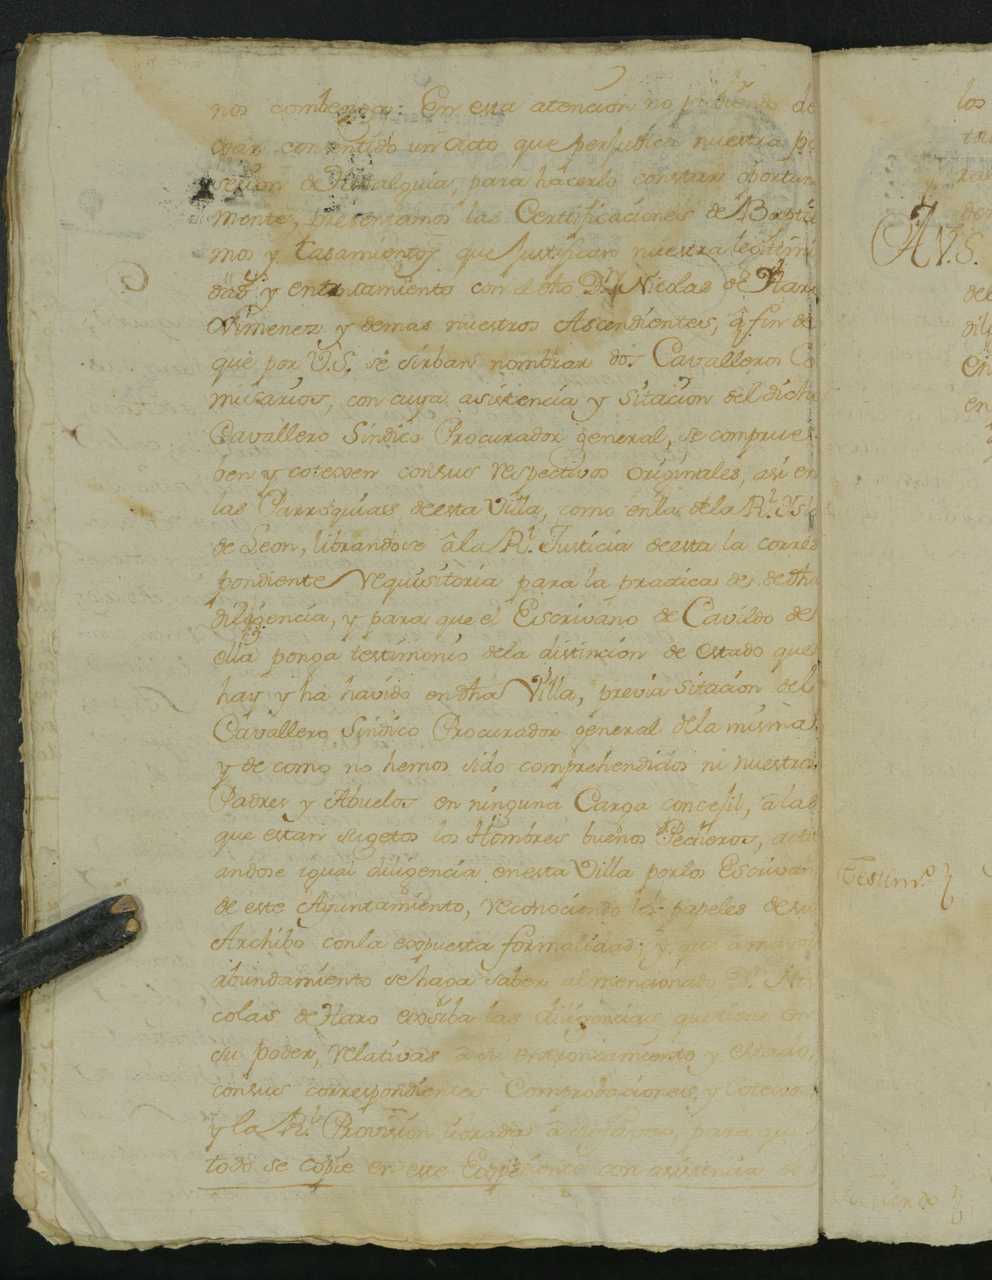 nos combenga: En esta atencion no pudiendo de
xar consentido un acto que perjudica nuestra po
sesion de Hidalguia, para hacerlo constar oportuna
mente, presentamos las Certificaciones de Bautis
mos y Casamientos que justifican nuestra legitimi
dad y entroncamiento con el dho Dn Nicolas de Haro
Ximenez y demas nuestros Ascendientes, â fin de
que por V.S. se sirban nombrar dos Cavalleros Co
misarios, con cuya asistencia y sitacion del dicho
Cavallero Sindico Procurador general, se comprue
ben y cotexen consus respectivos originales, asi en
las Parroquias de esta Villa, como enlas dela Rl. Ysla
de Leon, librandose âla Rl. Justicia de esta la corres
pondiente requisitoria para la practica de dha
diligencia, y para que el Escrivano de Cavildo de
ella ponga testimonio dela distincion de estado que
hay y ha havido en dha Villa, previa sitacion del
Cavallero Sindico Procurador general dela misma,
y de como no hemos sido comprehendidos ni nuestros
Padres y Abuelos en ninguna Carga concejil, â las
que estan sugetos los Hombres buenos Pecheros, actu
andose igual diligencia en esta Villa por los Escrivanos
de este Ayuntamiento, reconociendo los papeles de su
Archibo conla expuesta formalidad; y que a mayor
abundamiento se haga saber al mencionado Dn. Ni
colas de Haro exsiba las diligencias que tiene en
su poder, relativas a su entroncamiento y estado,
consus correspondientes Comprobaciones y Cotexos
y la Rl. Provision librada a su favor, para que
todo se copie en este Expediente con asistencia
los
A V.S.
en
Testimo.